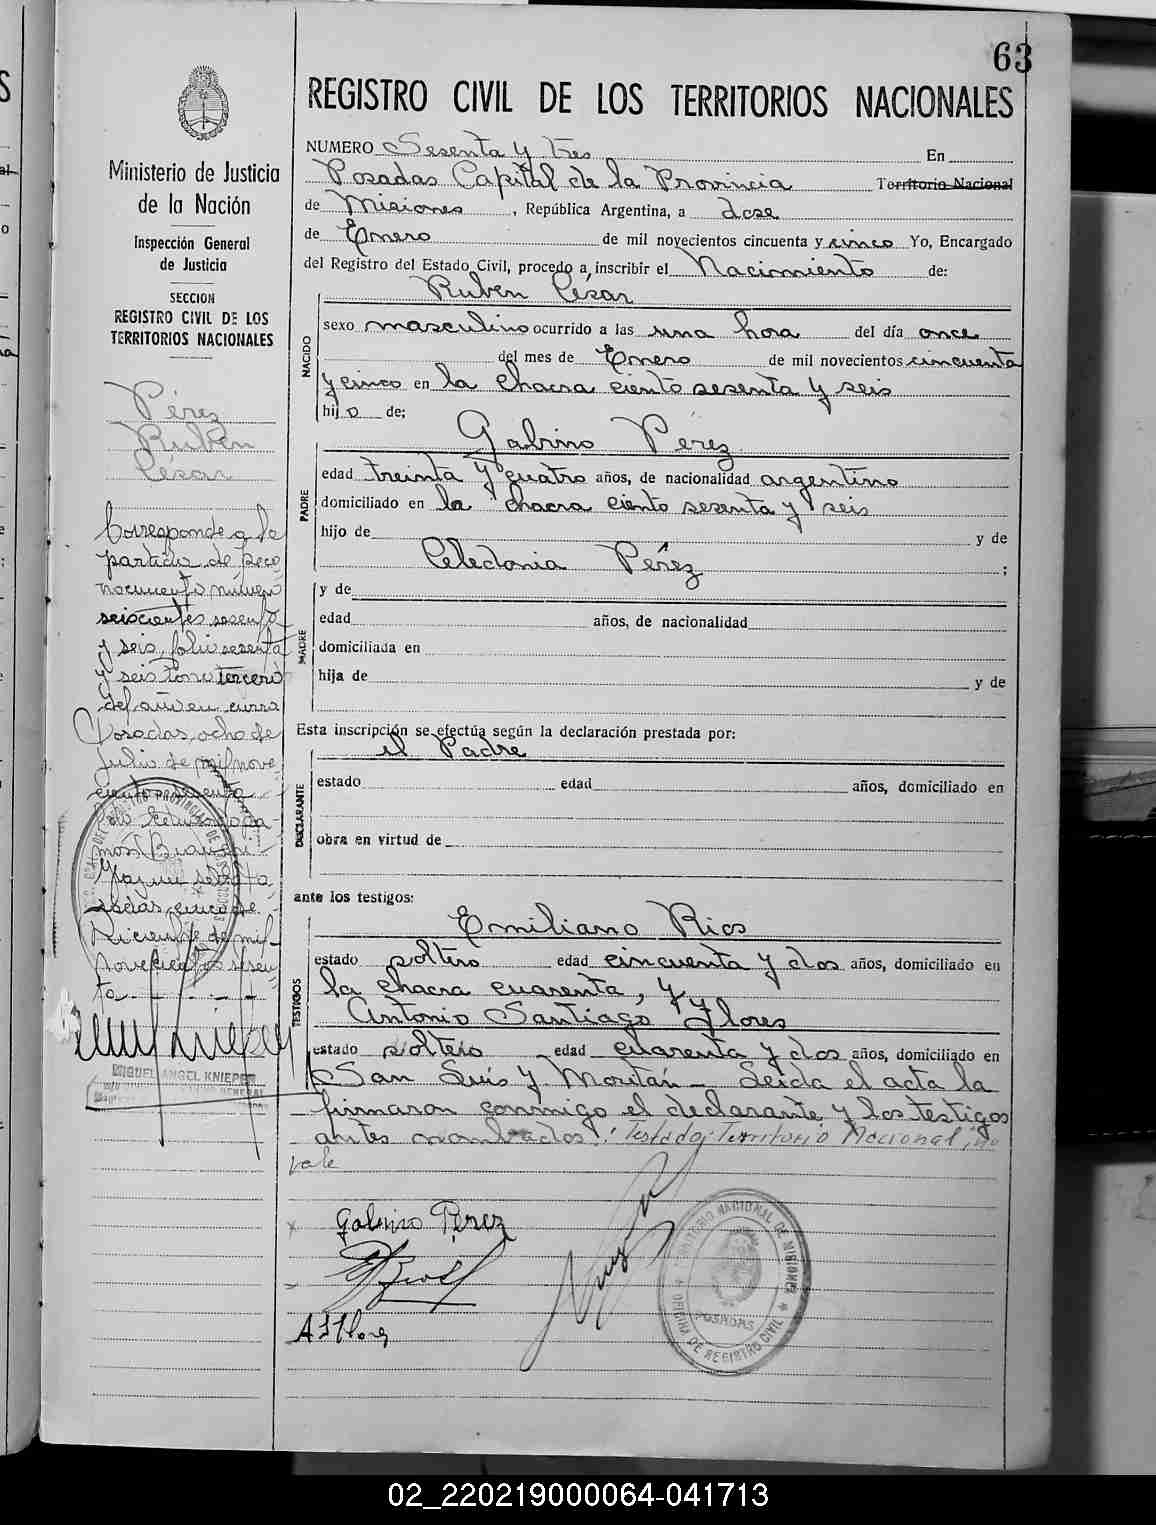 63
REGISTRO CIVIL DE LOS TERRITORIOS NACIONALES
NUMERO Sesenta y tres En
Posadas Capital de la Provincia Territorio Nacional
de Misiones, República Argentina, a dose
de Enero de mil novecientos cincuenta y cinco Yo, Encargado
del Registro del Estado Civil, procedo a inscribir el Nacimiento de:
Rubén César
NACIDO
sexo masculino ocurrido a las una hora del día once
del mes de Enero de mil novecientos cincuenta
y cinco en la chacra ciento sesenta y seis
hijo de;
Gabino Pérez
PADRE
edad treinta y cuatro años, de nacionalidad argentino
domiciliado en la chacra ciento sesenta y seis
hijo de y de
Celedonia Pérez ;
MADRE
y de
edad años, de nacionalidad
domiciliada en
hija de y de
Esta inscripción se efectúa según la declaración prestada por:
el Padre
DECLARANTE
estado edad años, domiciliado en
obra en virtud de
ante los testigos:
TESTIGOS
Emiliano Rios
estado soltero edad cincuenta y dos años, domiciliado en
la chacra cuarenta, y
Antonio Santiago Flores
estado soltero edad cuarenta y dos años, domiciliado en
San Luis y Moritán - Leida el acta la
firmaron conmigo el declarante y los testigos
antes nombrados.: Testado: Territorio Nacional, no
vale
Gabino Perez
A S Flores
TERRITORIO NACIONAL DE MISIONES
POSADAS
OFICINA DE REGISTRO CIVIL
Ministerio de Justicia
de la Nación
Inspección General
de Justicia
SECCION
REGISTRO CIVIL DE LOS
TERRITORIOS NACIONALES
Pérez
Rubén
César
Corresponde a la
partida de reco
nocimiento número
seiscientos sesenta
y seis, folio sesenta
y seis Tomo tercero
del año en curso
Posadas, ocho de
Julio de mil nove
cientos sesenta
de
Diciembre de mil
novecientos sesen
ta
MIGUEL ANGEL KNIEPER
02_220219000064-041713